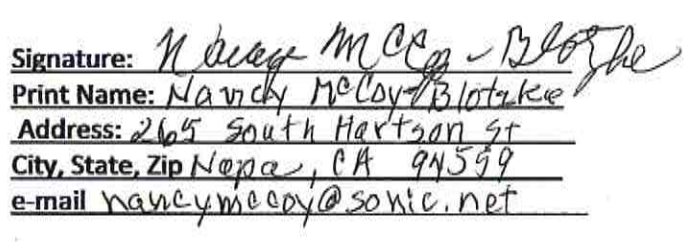 Signature: Nancy McCoy-Blotzke
Print Name: Nancy McCoy-Blotzke
Address: 265 South Hartson St
City, State, Zip Napa, CA 94559
e-mail nancymccoy@sonic.net